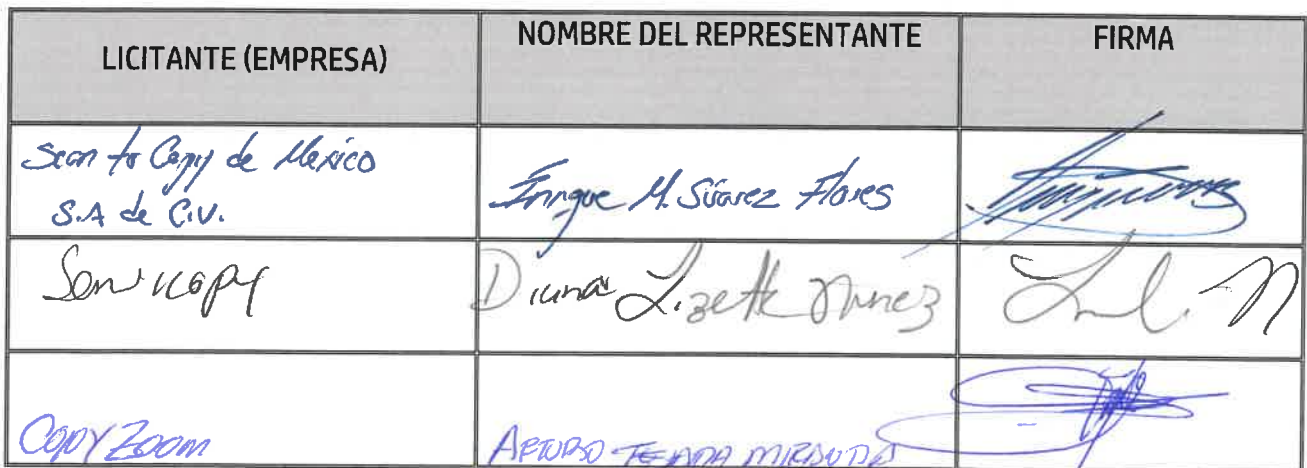 LICITANTE (EMPRESA)
NOMBRE DEL REPRESENTANTE
FIRMA
Scan to Copy de Mexico
S.A de C.V.
Enrique M. Súarez Flores
Servicopy
Diana Lizette Nunez
Copy Zoom
ARTURO MIRANDA